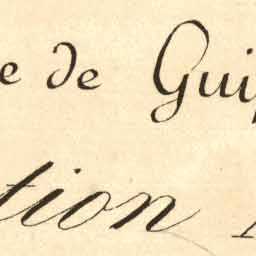 e de Gui
tion